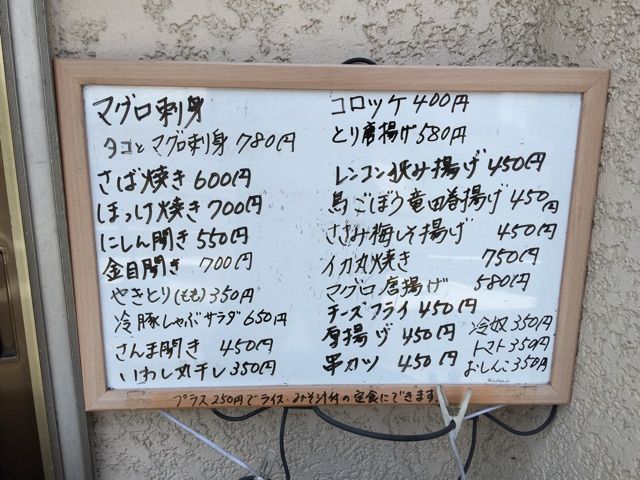 マグロ刺身
タコとマグロ刺身 780円
さば焼き 600円
ほっけ焼き 700円
にしん開き 550円
金目開き 700円
やきとり(もも) 350円
冷豚しゃぶサラダ 650円
さんま開き 450円
いわし丸干し 350円
コロッケ 400円
とり唐揚げ 580円
レンコン挟み揚げ 450円
鳥ごぼう竜田巻揚げ 450円
ささみ梅しそ揚げ 450円
イカ丸焼き 750円
マグロ唐揚げ 580円
チーズフライ 450円
厚揚げ 450円
串カツ 450円
冷奴 350円
トマト 350円
おしんこ 350円
プラス250円でライス・みそ汁付の定食にできます。